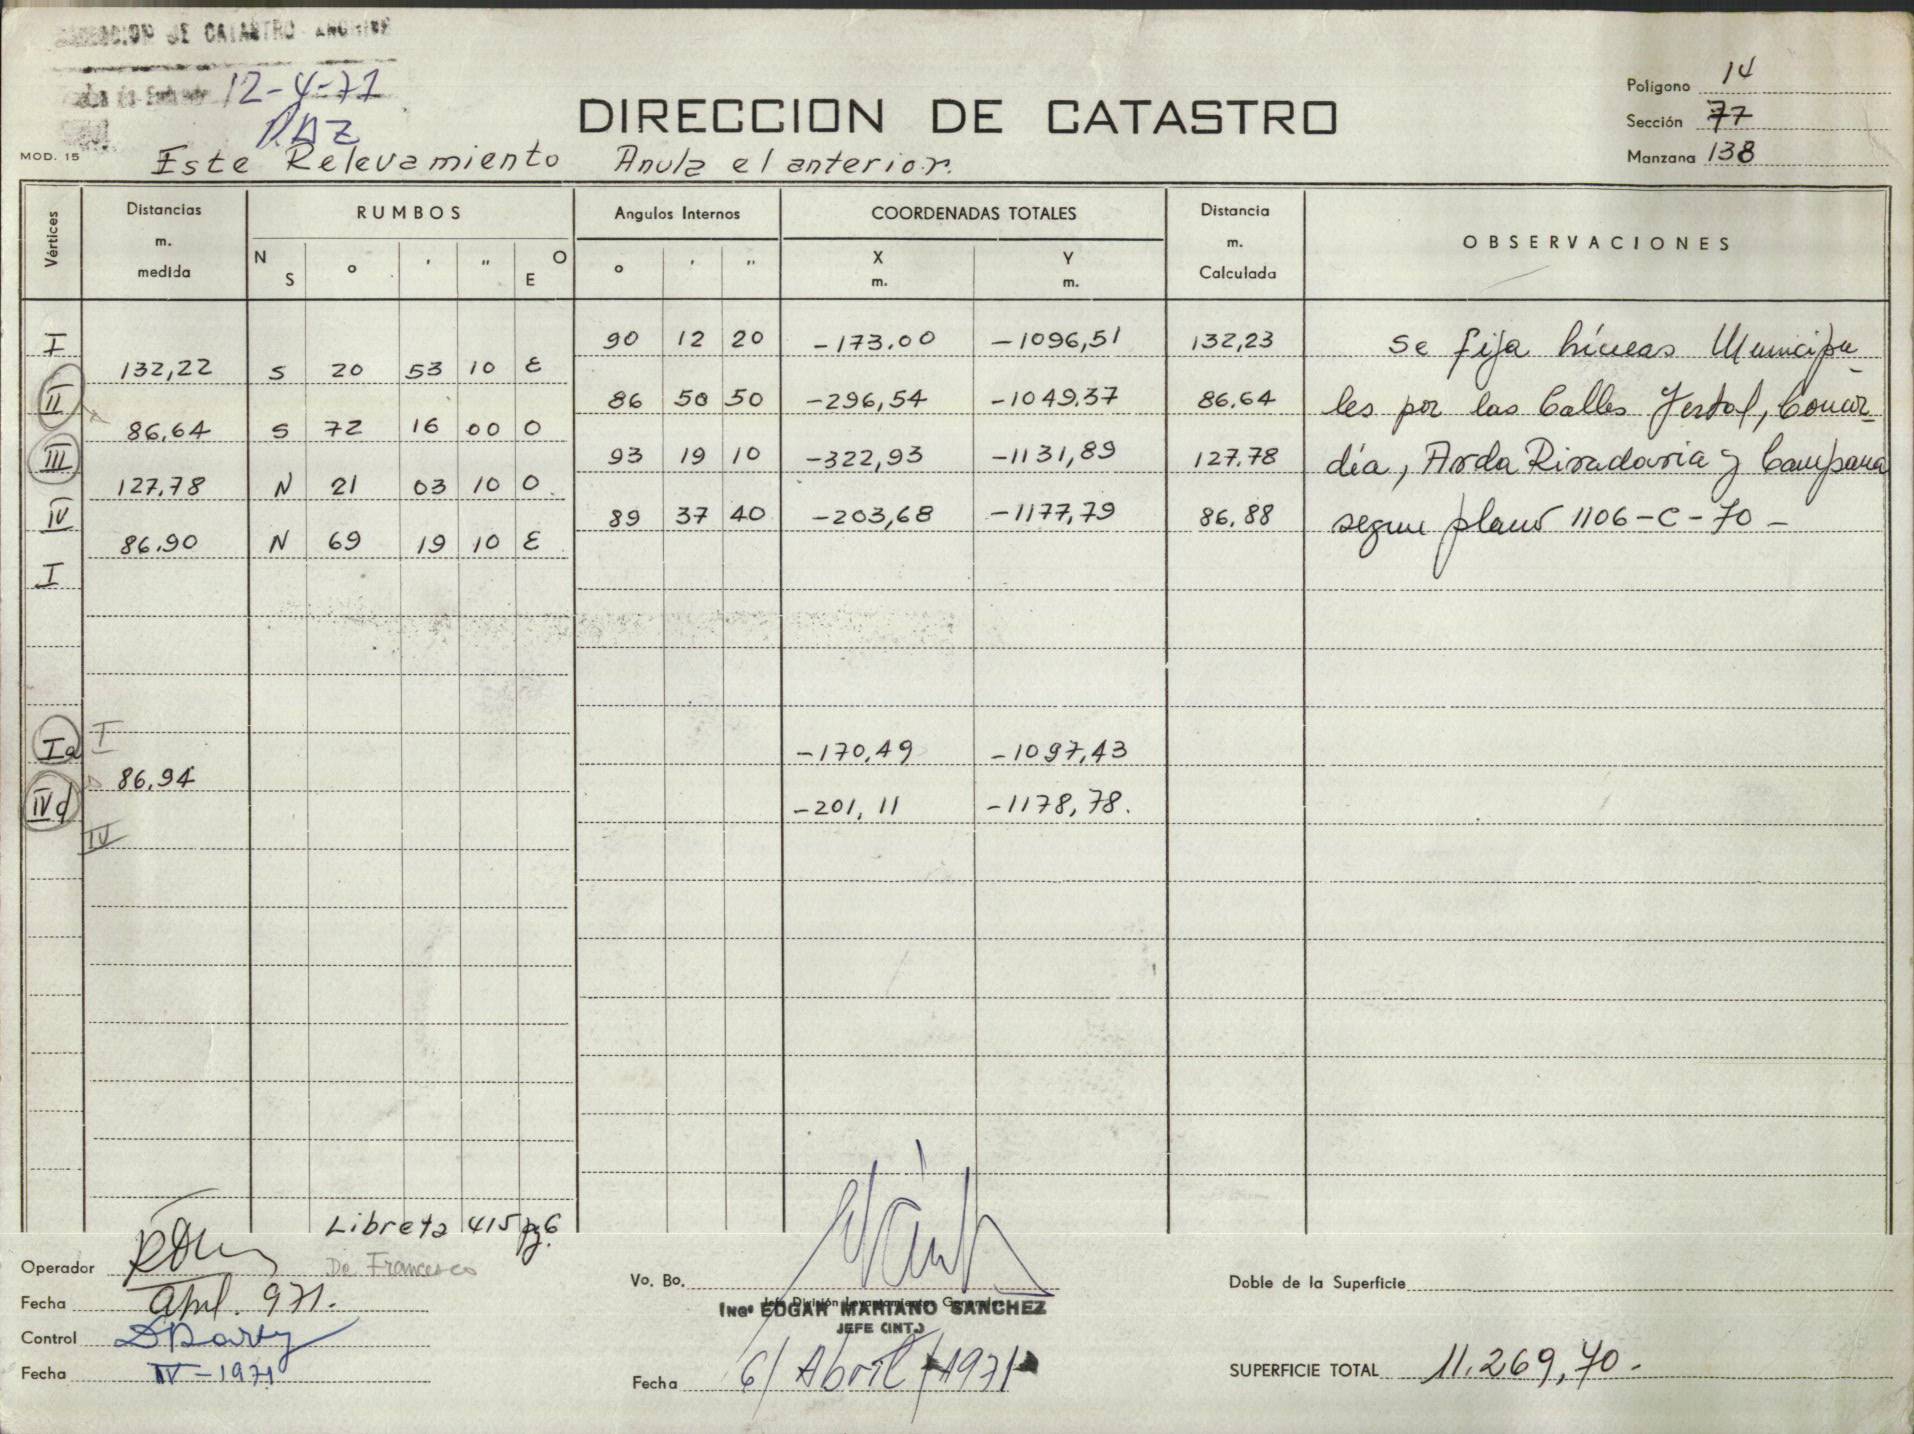 DIRECCION DE CATASTRO ARCHIVO
12-4-71
PAZ
DIRECCION DE CATASTRO
Polígono 14
Sección 77
Manzana 138
MOD. 15
Este Relevamiento Anula el anterior.
Vértices
Distancias m. medida
RUMBOS
N S ° ' " O E
Angulos Internos
° ' "
COORDENADAS TOTALES
X m. Y m.
Distancia m. Calculada
OBSERVACIONES
I 90 12 20 -173.00 -1096,51 132,23 Se fija líneas Municipa
132,22 S 20 53 10 E
II 86 50 50 -296,54 -1049.37 86.64 les por las Calles
86,64 S 72 16 00 O
III 93 19 10 -322,93 -1131,89 127.78 día, Avda Rivadavia y Campana
127,78 N 21 03 10 O
IV 89 37 40 -203,68 -1177,79 86,88 segun plano 1106-C-70 -
86.90 N 69 19 10 E
I
Ia I -170,49 -1097,43
86,94
IVd -201,11 -1178,78.
IV
Libreta 415 pg. 6
Operador De Francesco
Fecha April. 971.
Control
Fecha IV-1971
Vo. Bo.
Jefe División Levantamientos Generales
ING° EDGAR MARIANO SANCHEZ
JEFE (INT.)
Fecha 6/Abril/1971
Doble de la Superficie
SUPERFICIE TOTAL 11.269,70.-